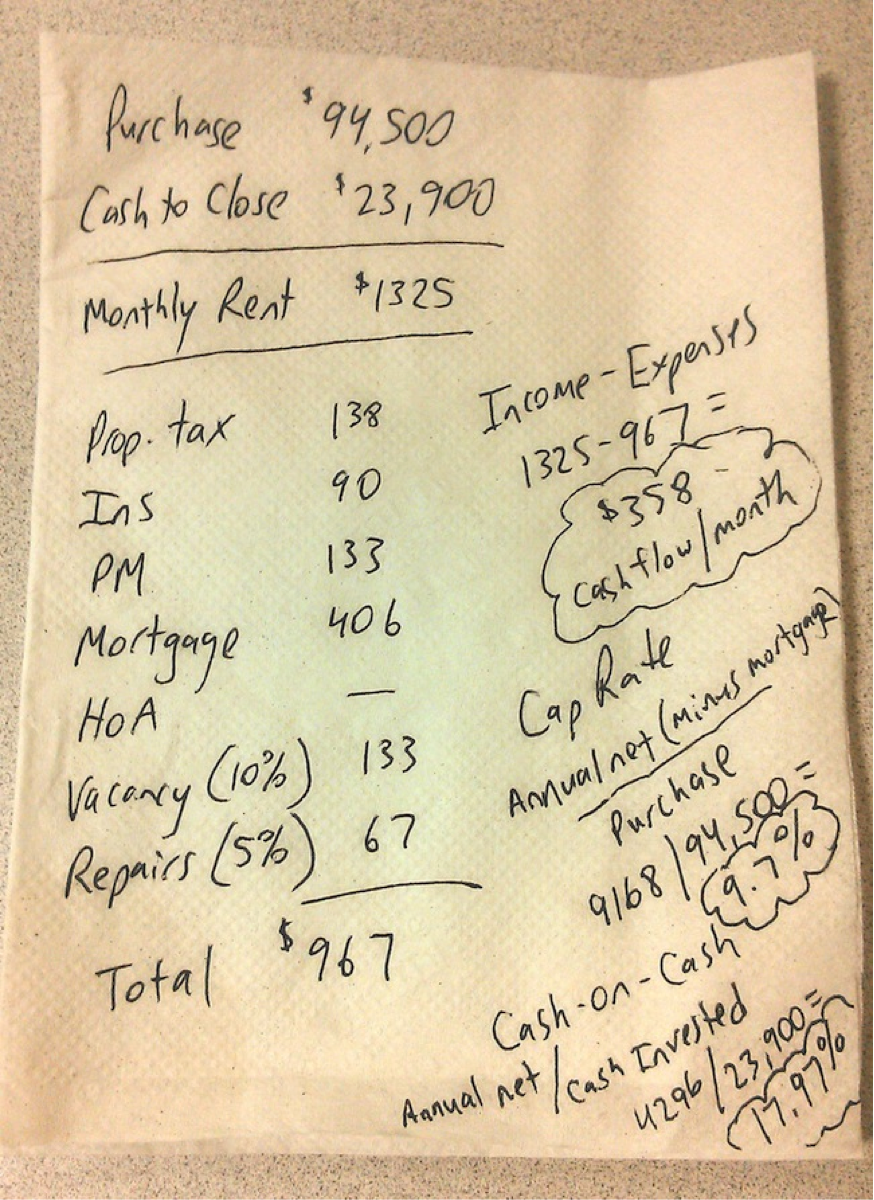 Purchase $94,500
Cash to Close $23,900
Monthly Rent $1325
Prop. tax 138
Ins 90
PM 133
Mortgage 406
HoA —
Vacancy (10%) 133
Repairs (5%) 67
Total $967
Income - Expenses
1325-967=
$358
Cashflow/month
Cap Rate
Annual net (minus mortgage)
Purchase
9168/94,500=
9.7%
Cash-on-Cash
Annual net/Cash Invested
4296/23,900=
17.97%